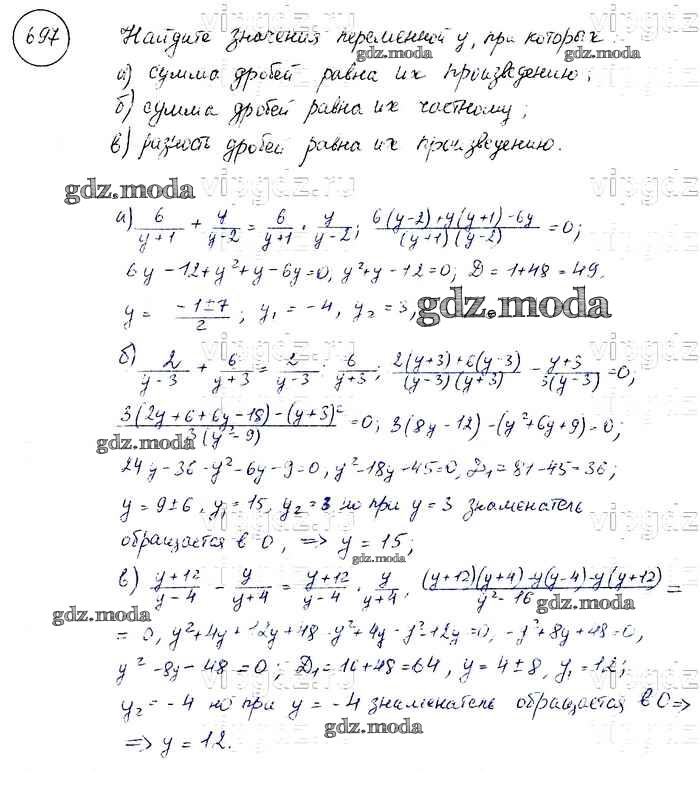 697 Найдите значения переменной y, при которых:
а) сумма дробей равна их произведению;
б) сумма дробей равна их частному;
в) разность дробей равна их произведению.
а) 6/(y+1) + y/(y-2) = 6/(y+1) · y/(y-2); (6(y-2)+y(y+1)-6y)/((y+1)(y-2)) = 0;
6y-12+y²+y-6y=0, y²+y-12=0; D=1+48=49,
y = (-1±7)/2; y₁=-4, y₂=3,
б) 2/(y-3) + 6/(y+3) = 2/(y-3) : 6/(y+3); (2(y+3)+6(y-3))/((y-3)(y+3)) - (y+3)/(3(y-3)) = 0;
(3(2y+6+6y-18)-(y+3)²)/(3(y²-9)) = 0; 3(8y-12)-(y²+6y+9)=0;
24y-36-y²-6y-9=0, y²-18y-45=0, D₁=81-45=36;
y=9±6, y₁=15, y₂=3 но при y=3 знаменатель
обращается в 0, => y=15;
в) (y+12)/(y-4) - y/(y+4) = (y+12)/(y-4) · y/(y+4), ((y+12)(y+4)-y(y-4)-y(y+12))/(y²-16) =
= 0, y²+4y+12y+48-y²+4y-y²-12y=0, -y²+8y+48=0,
y²-8y-48=0; D₁=16+48=64, y=4±8, y₁=12;
y₂=-4 но при y=-4 знаменатель обращается в 0 =>
=> y=12.
gdz.moda
vipgdz.ru